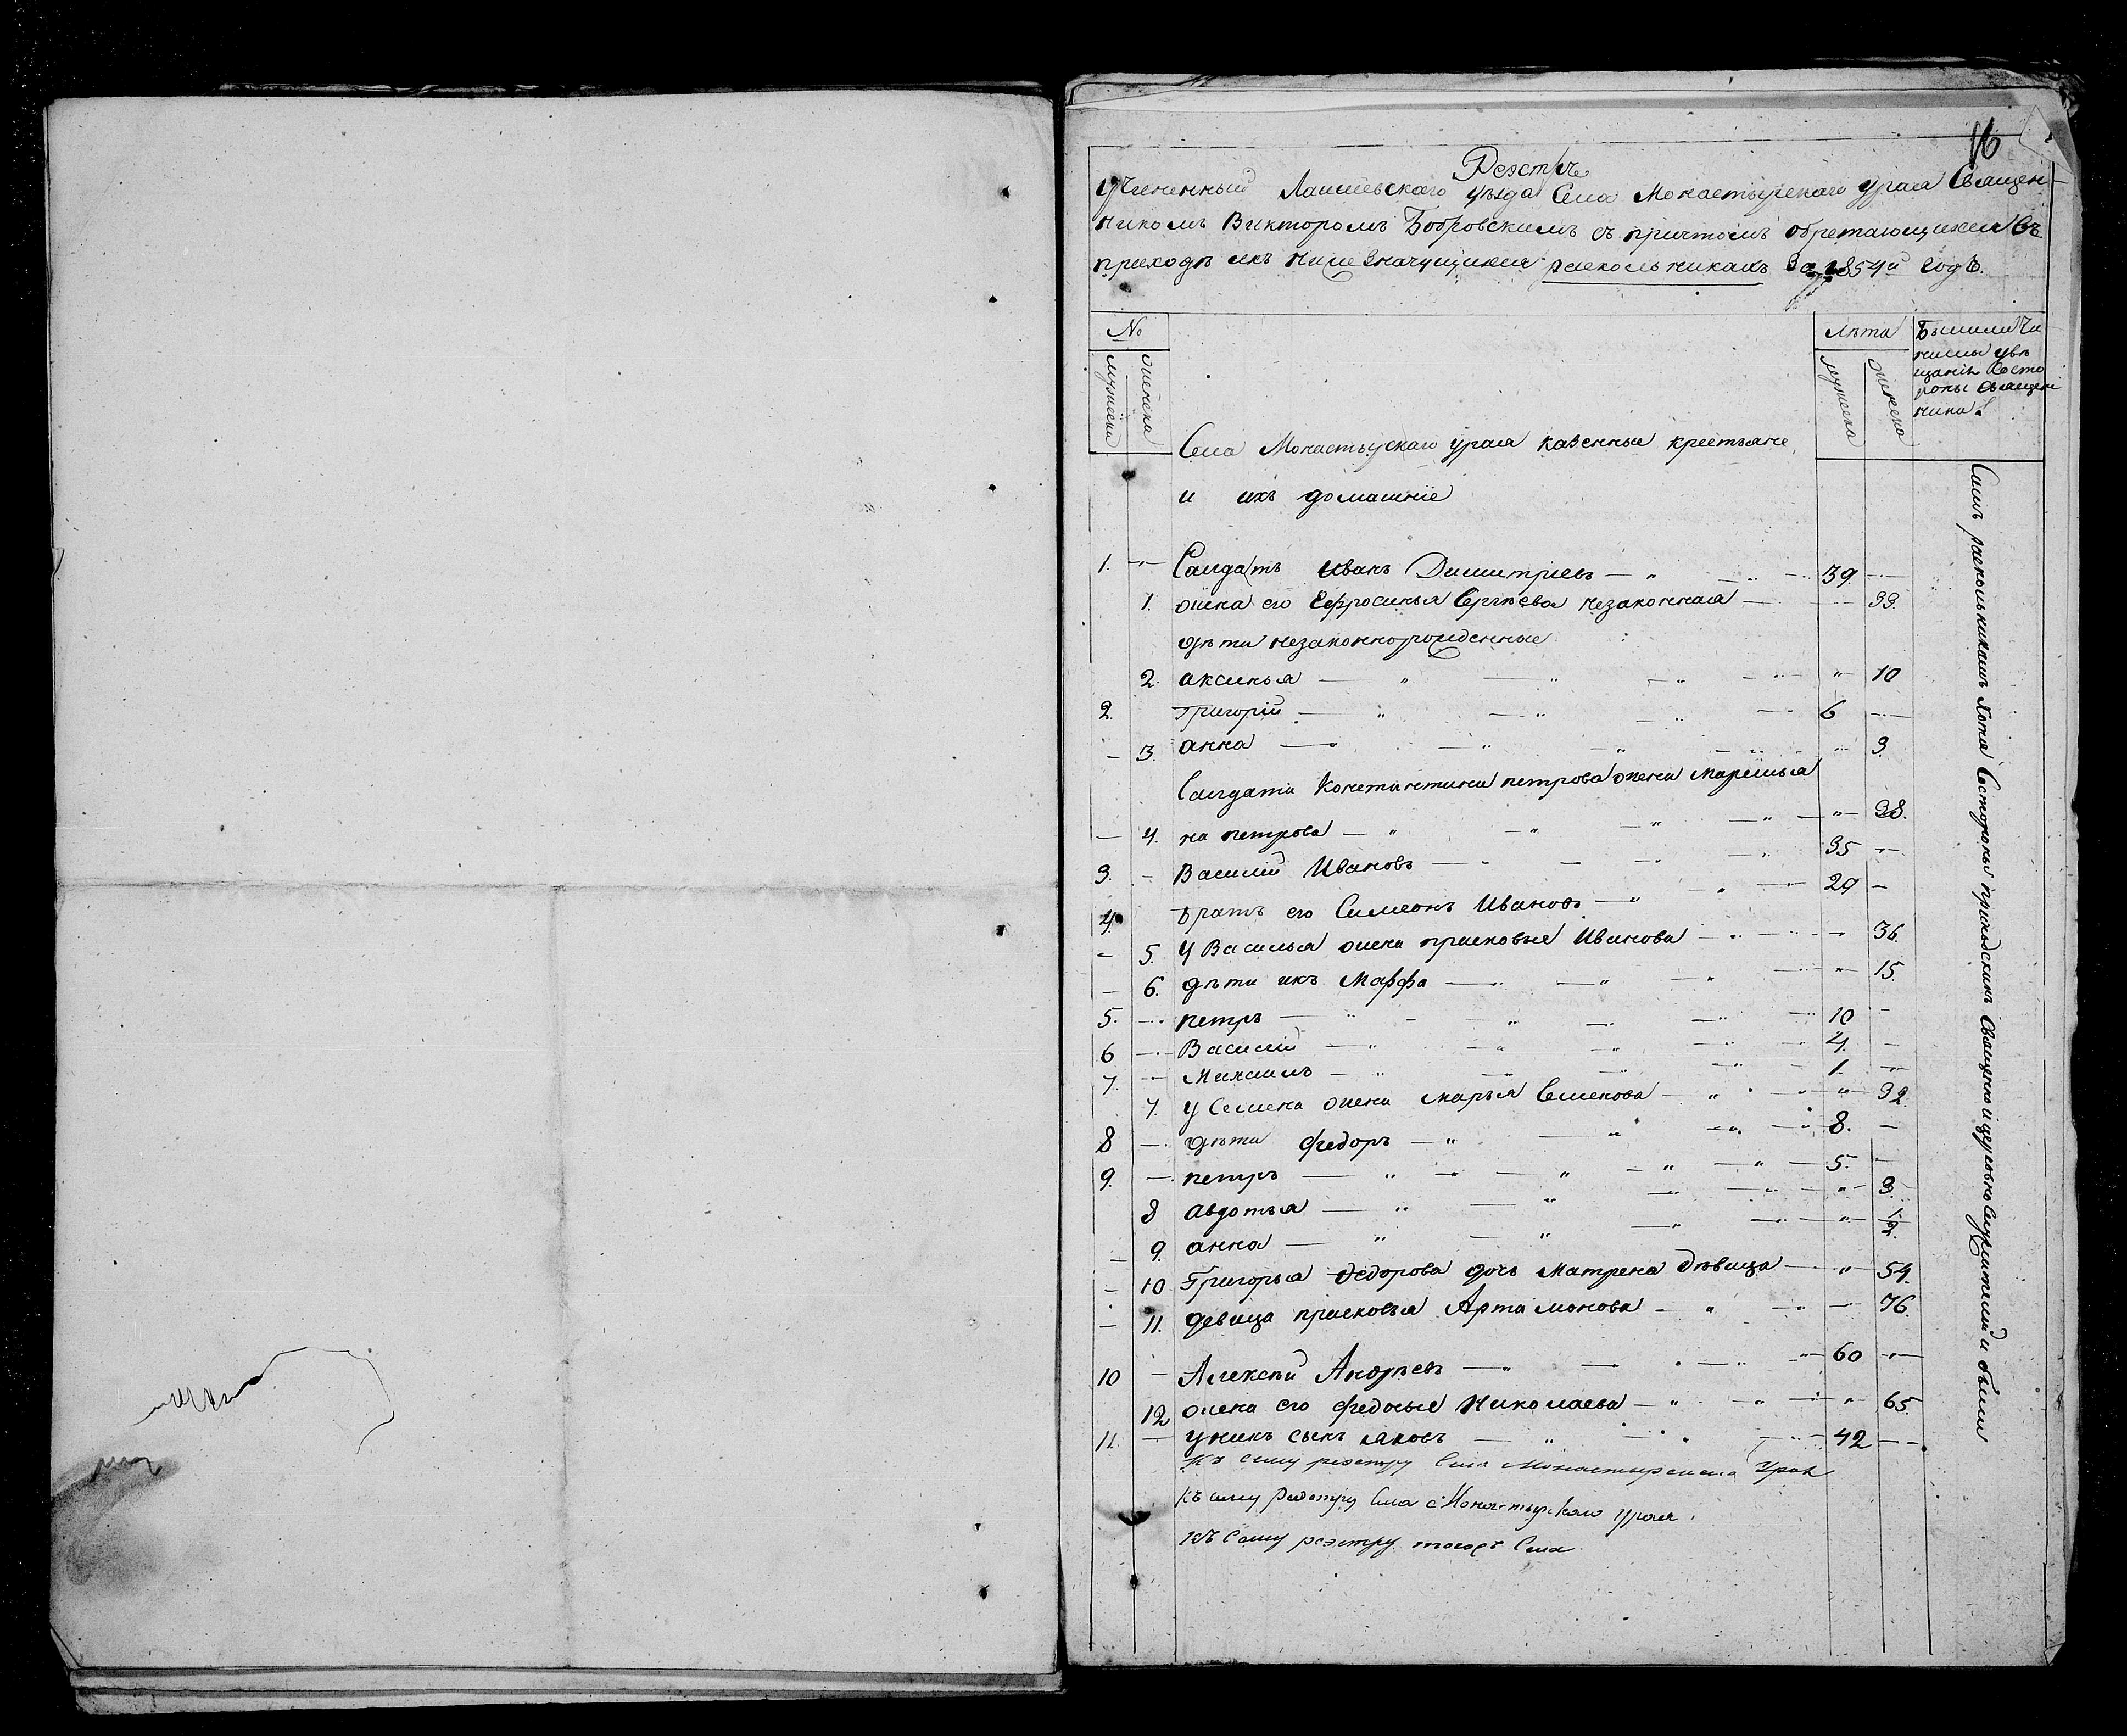 16
Реэстръ
учиненный Лаишевскаго уѣзда Села Монастырскаго урая Священ
никомъ Викторомъ Бобровскимъ съ причтомъ обретающихся въ
приходѣ ихъ ниже значущихся раскольникахъ За 1854й годъ.
№
Лѣта
мужеска
женска
мужеска
женска
Былили Чи
нимы увѣ
щаніи Состо
роны священ
ника
Села Монастырскаго урая казенные крестьяне
и ихъ домашніе
1. Салдатъ Иванъ Димитріевъ 39
1. жена его Ефросинья Сергѣева незаконная 33.
дѣти незаконнорожденные
2. аксинья 10
2. Григорій 6
3. анна 3
Салдата Константина петрова жена Маремья
4. на петрова 38.
3. Василій Ивановъ 35
4. братъ его Симеонъ Ивановъ 29
5. у Василья жена прасковья Иванова 36.
6. дѣти ихъ Марфа 15.
5. петръ 10
6 Василій 4.
7. Михаилъ 1.
7. у Семена жена марья Семенова 32.
8 дѣти федоръ 8.
9. петръ 5.
8 авдотья 3.
9. анна 1/2.
10 Григорья Федорова дочь Матрена дѣвица 54.
11. девица прасковья Артамонова 76.
10 Алексѣй Андрѣевъ 60
12 жена его федосья Николаева 65.
11. у нихъ сынъ яковъ 42
Къ сему реэстру Села Монастырскаго Урая
Къ сему реэстру Села Монастырскаго урая
Къ Сему реэстру тогожъ Села
Симъ раскольникамъ хотя Состороны приходскихъ Священно и церковно Служителей и были